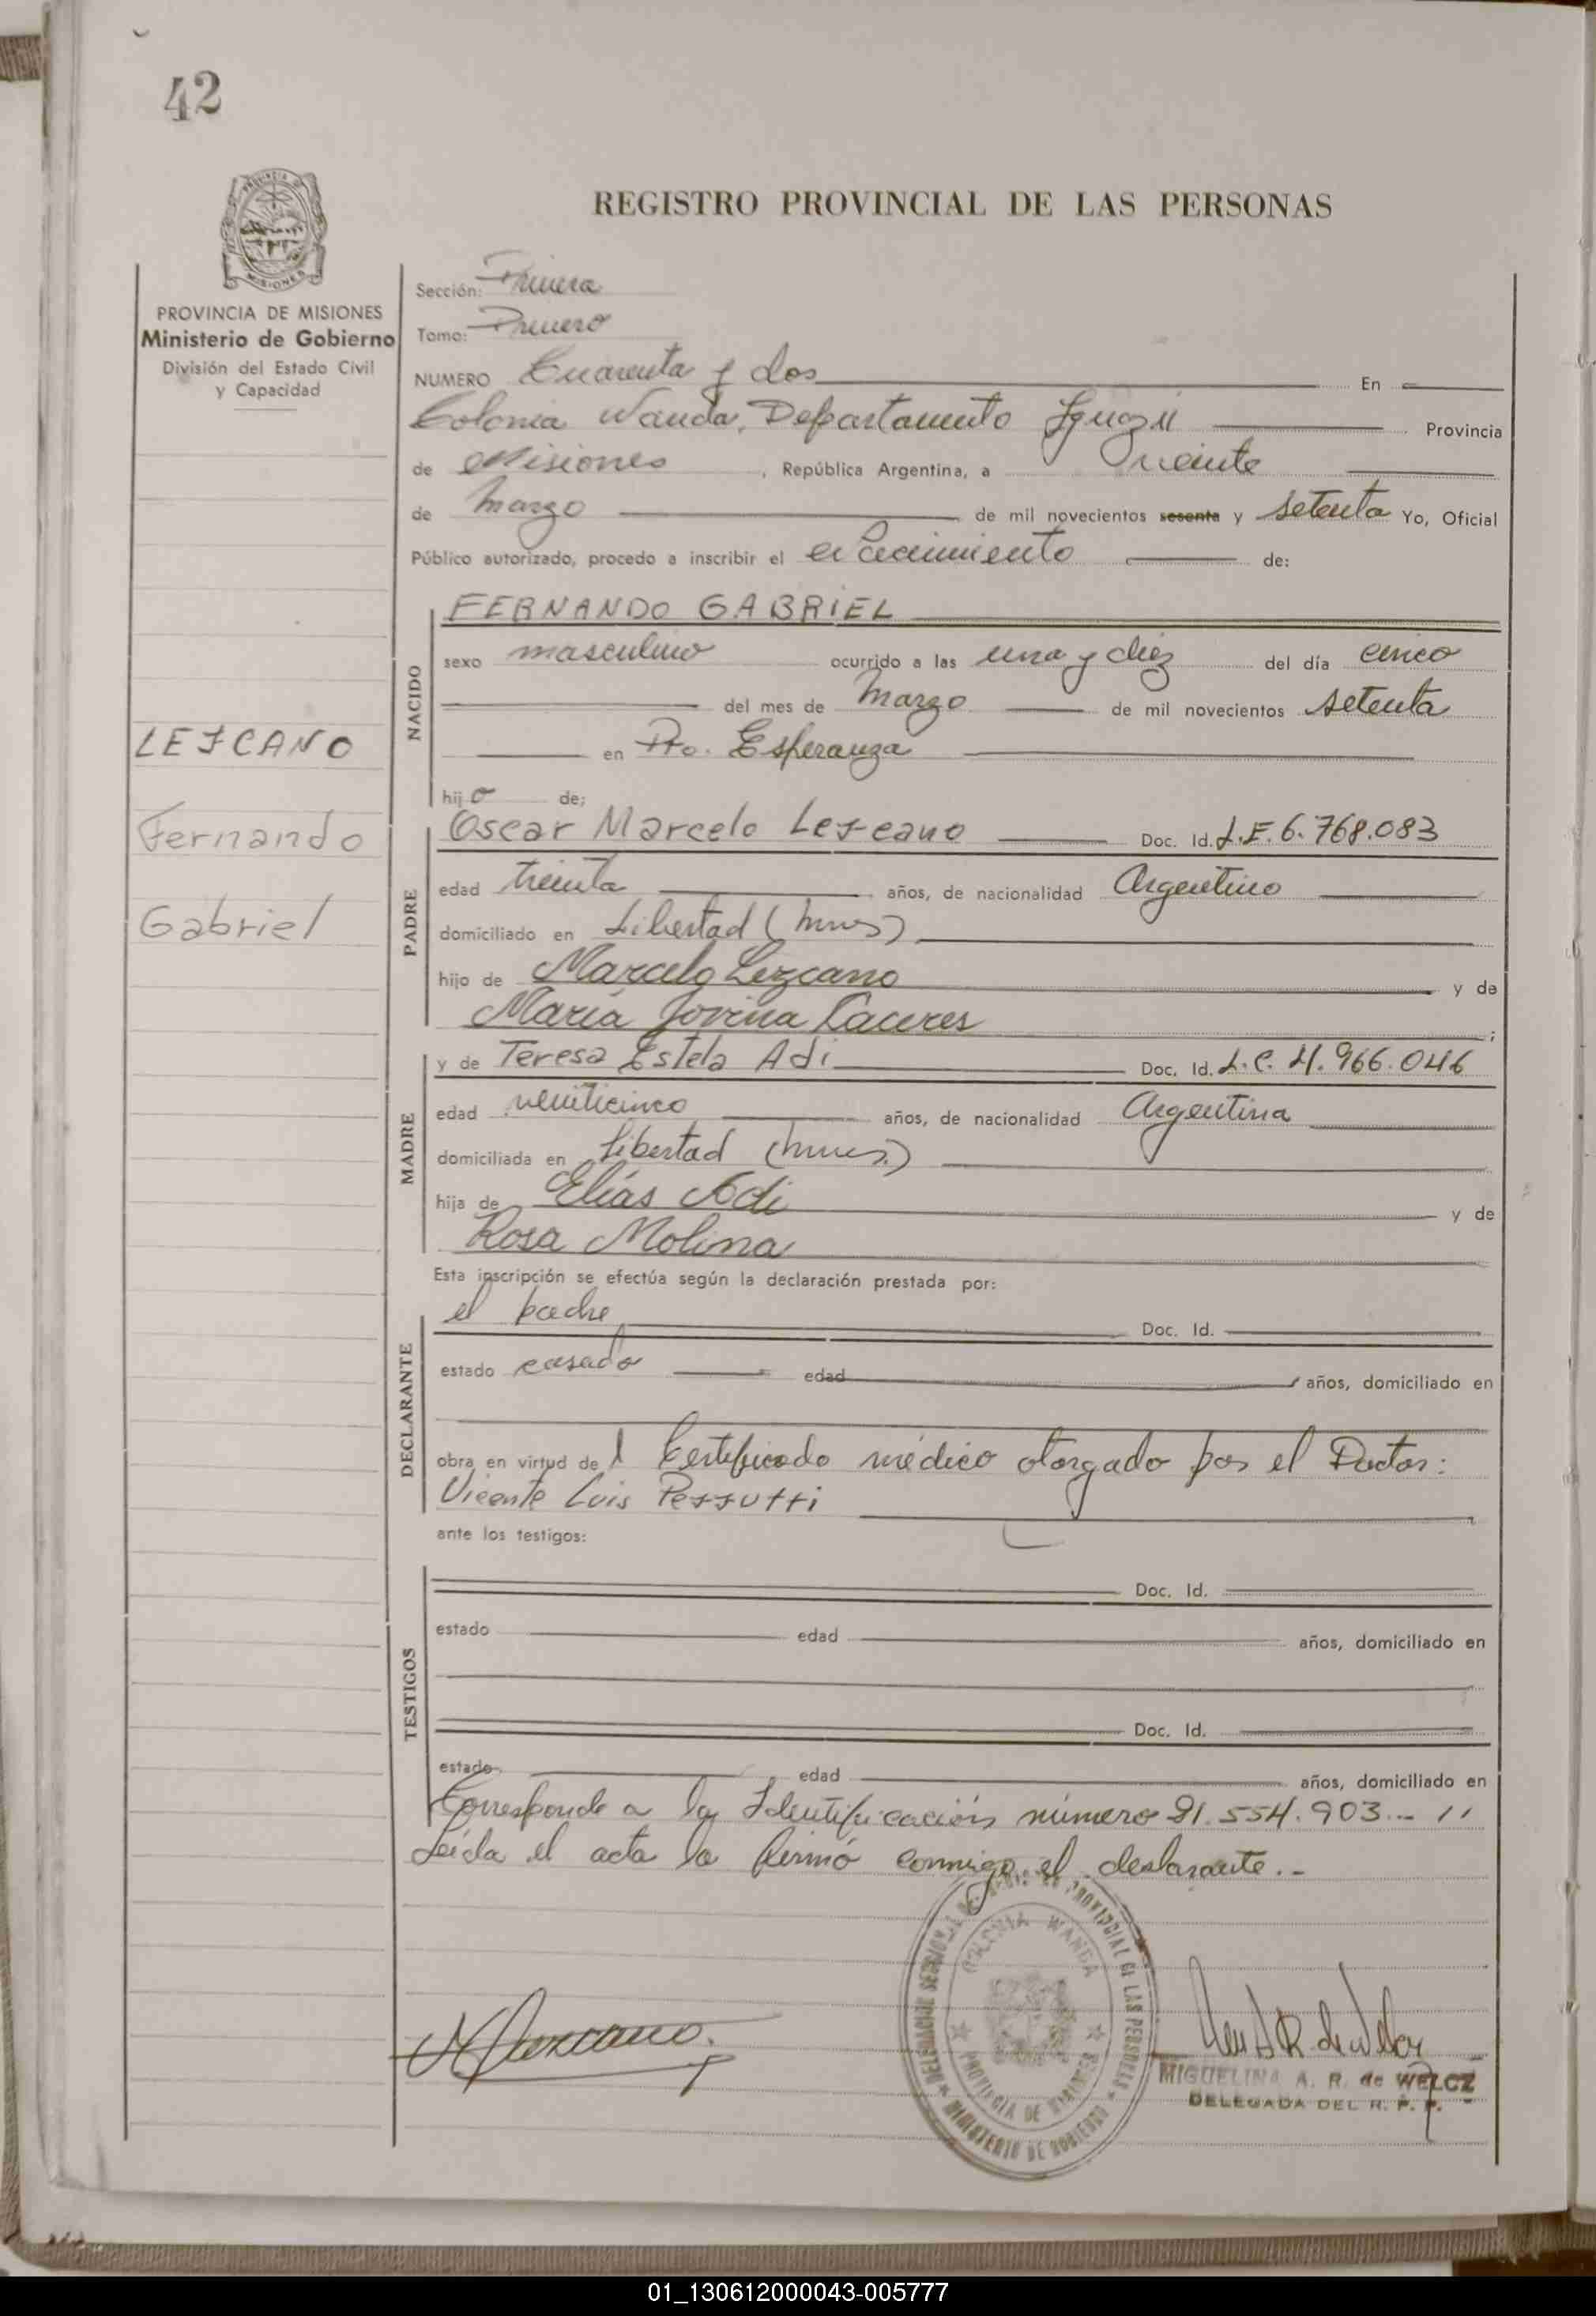 42
REGISTRO PROVINCIAL DE LAS PERSONAS
PROVINCIA DE MISIONES
Ministerio de Gobierno
División del Estado Civil
y Capacidad
LEZCANO
Fernando
Gabriel
Sección: Primera
Tomo: Primero
NUMERO Cuarenta y dos En
Colonia Wanda, Departamento Iguazú Provincia
de Misiones, República Argentina, a veinte
de Marzo de mil novecientos sesenta y setenta Yo, Oficial
Público autorizado, procedo a inscribir el nacimiento de:
NACIDO
FERNANDO GABRIEL
sexo masculino ocurrido a las una y diez del día cinco
del mes de Marzo de mil novecientos setenta
en Pto. Esperanza
hijo de;
PADRE
Oscar Marcelo Lezcano Doc. Id. L.E. 6.768.083
edad treinta años, de nacionalidad Argentino
domiciliado en Libertad (Mnes)
hijo de Marcelo Lezcano y de
María Jovina Caceres ;
MADRE
y de Teresa Estela Adi Doc. Id. L.C. 4.966.046
edad veinticinco años, de nacionalidad Argentina
domiciliada en Libertad (Mnes.)
hija de Elías Adi y de
Rosa Molina
Esta inscripción se efectúa según la declaración prestada por:
DECLARANTE
el padre Doc. Id.
estado casado edad años, domiciliado en
obra en virtud del Certificado médico otorgado por el Doctor:
Vicente Luis Pezzutti
ante los testigos:
TESTIGOS
Doc. Id.
estado edad años, domiciliado en
Doc. Id.
estado edad años, domiciliado en
Corresponde a la Identificación número 21.554.903.-
Leída el acta la firmó conmigo el declarante.-
COLONIA WANDA
PROVINCIA DE MISIONES
PROVINCIAL DE LAS PERSONAS
MINISTERIO DE GOBIERNO
MIGUELINA A. R. de WELCZ
DELEGADA DEL R. P. P.
01_130612000043-005777